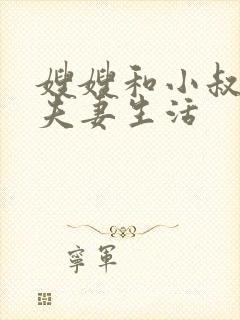 嫂嫂和小叔
夫妻生活
寧軍